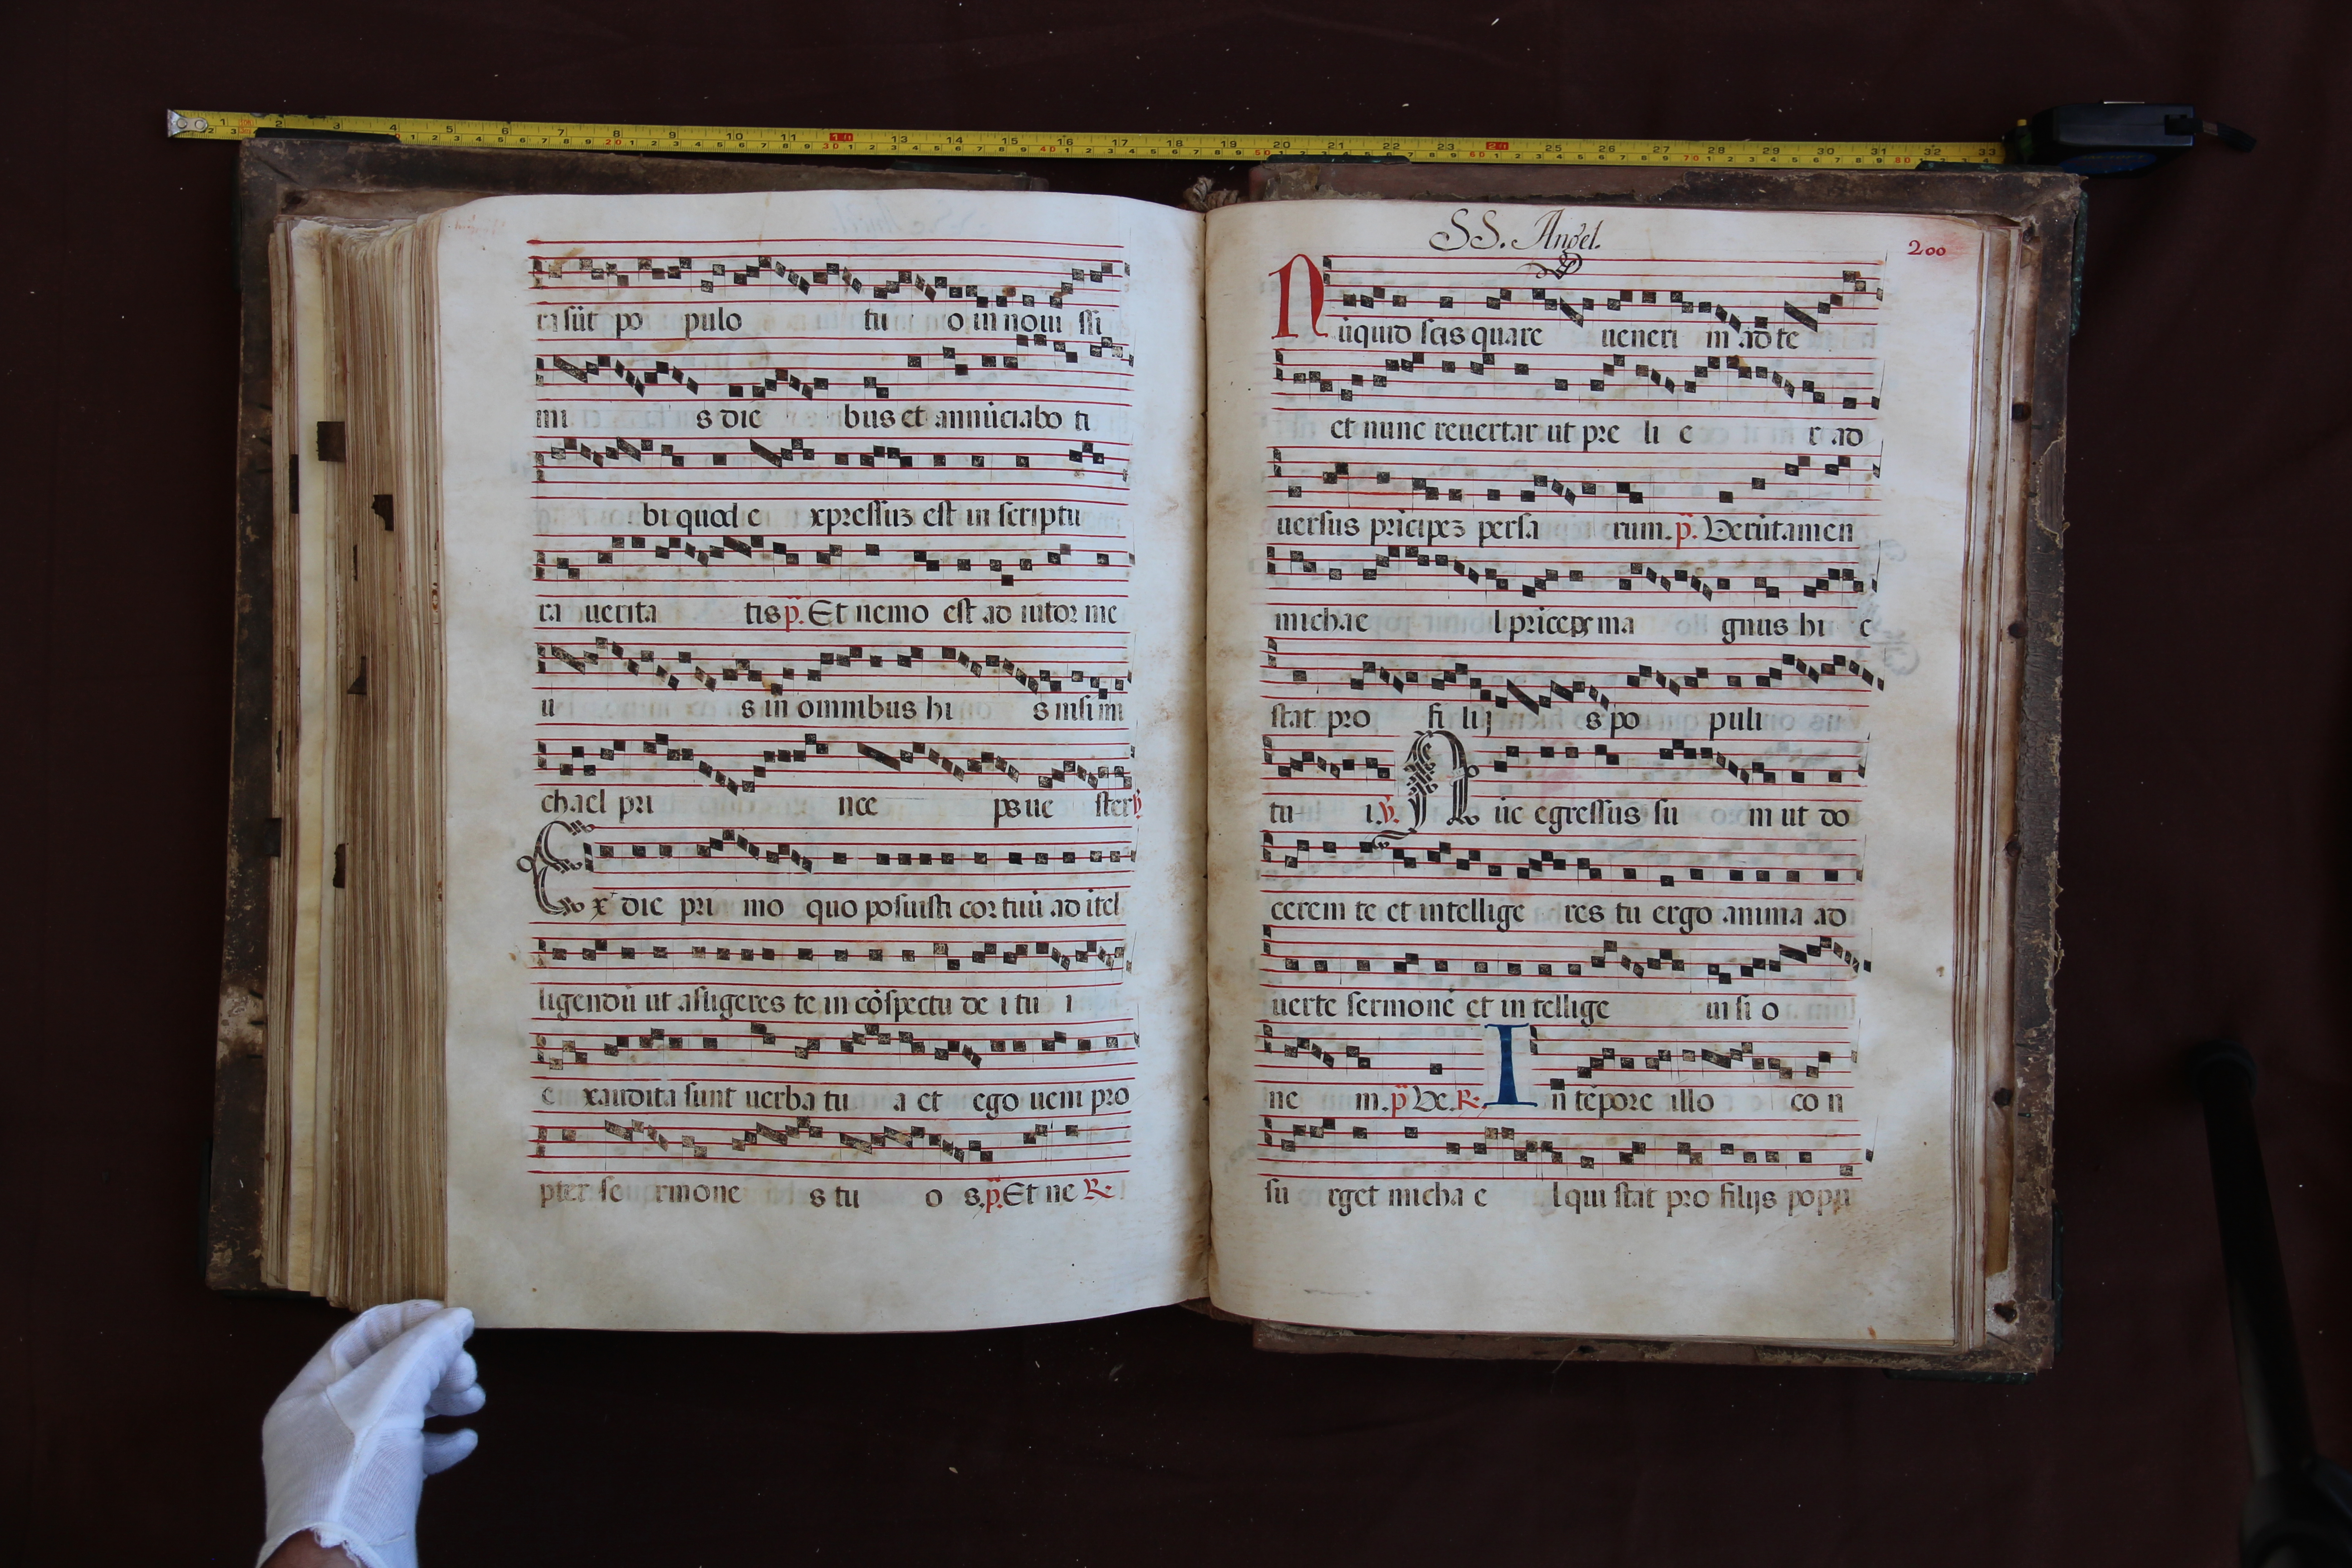 ra sūt po pulo tu o in noui ssi
mi s die bus et annūciabo ti
bi quod e xpressuz est in scriptu
ra uerita tis p̄. Et nemo est ad iutor me
u s in omnibus hi s nisi mi
chael pri nce ps ue ster ℣
Ex die pri mo quo posuisti cor tuū ad ītel
ligendū ut afligeres te in cōspectu de i tu i
e xaudita sunt uerba tu a et ego ueni pro
pter se rmone s tu o s. p̄. Et ne ℞.
SS. Angel.
200
Nūquid scis quare ueneri m ad te
et nunc reuertar ut pre li e r ad
uersus prīcipez persa rum. p̄. Verūtamen
michae l prīceps ma gnus hi c
stat pro fi lij s po puli
tu i. ℣. Nūc egressus su m ut do
cerem te et intellige res tu ergo anima ad
uerte sermonē et in tellige ui si o
ne m. p̄ Ve. ℞. In tēpore illo co n
su rget micha e l qui stat pro filijs popu